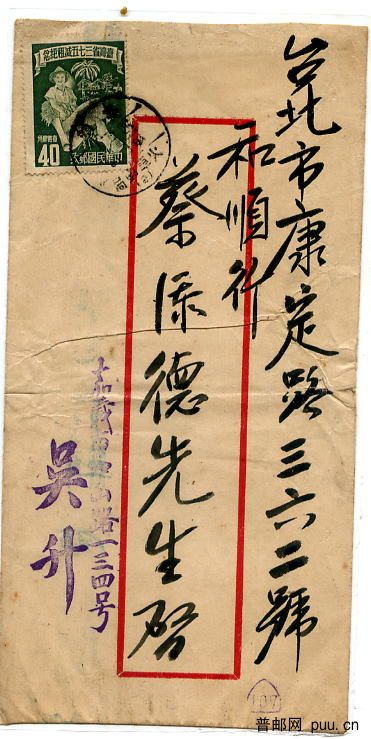 台北市康定路三六二號
和順行
蔡添德先生啓
嘉義市中山路一三四号
吳升
臺灣省三七五減租紀念
40
中華民國郵政
107
普邮网 puu.cn